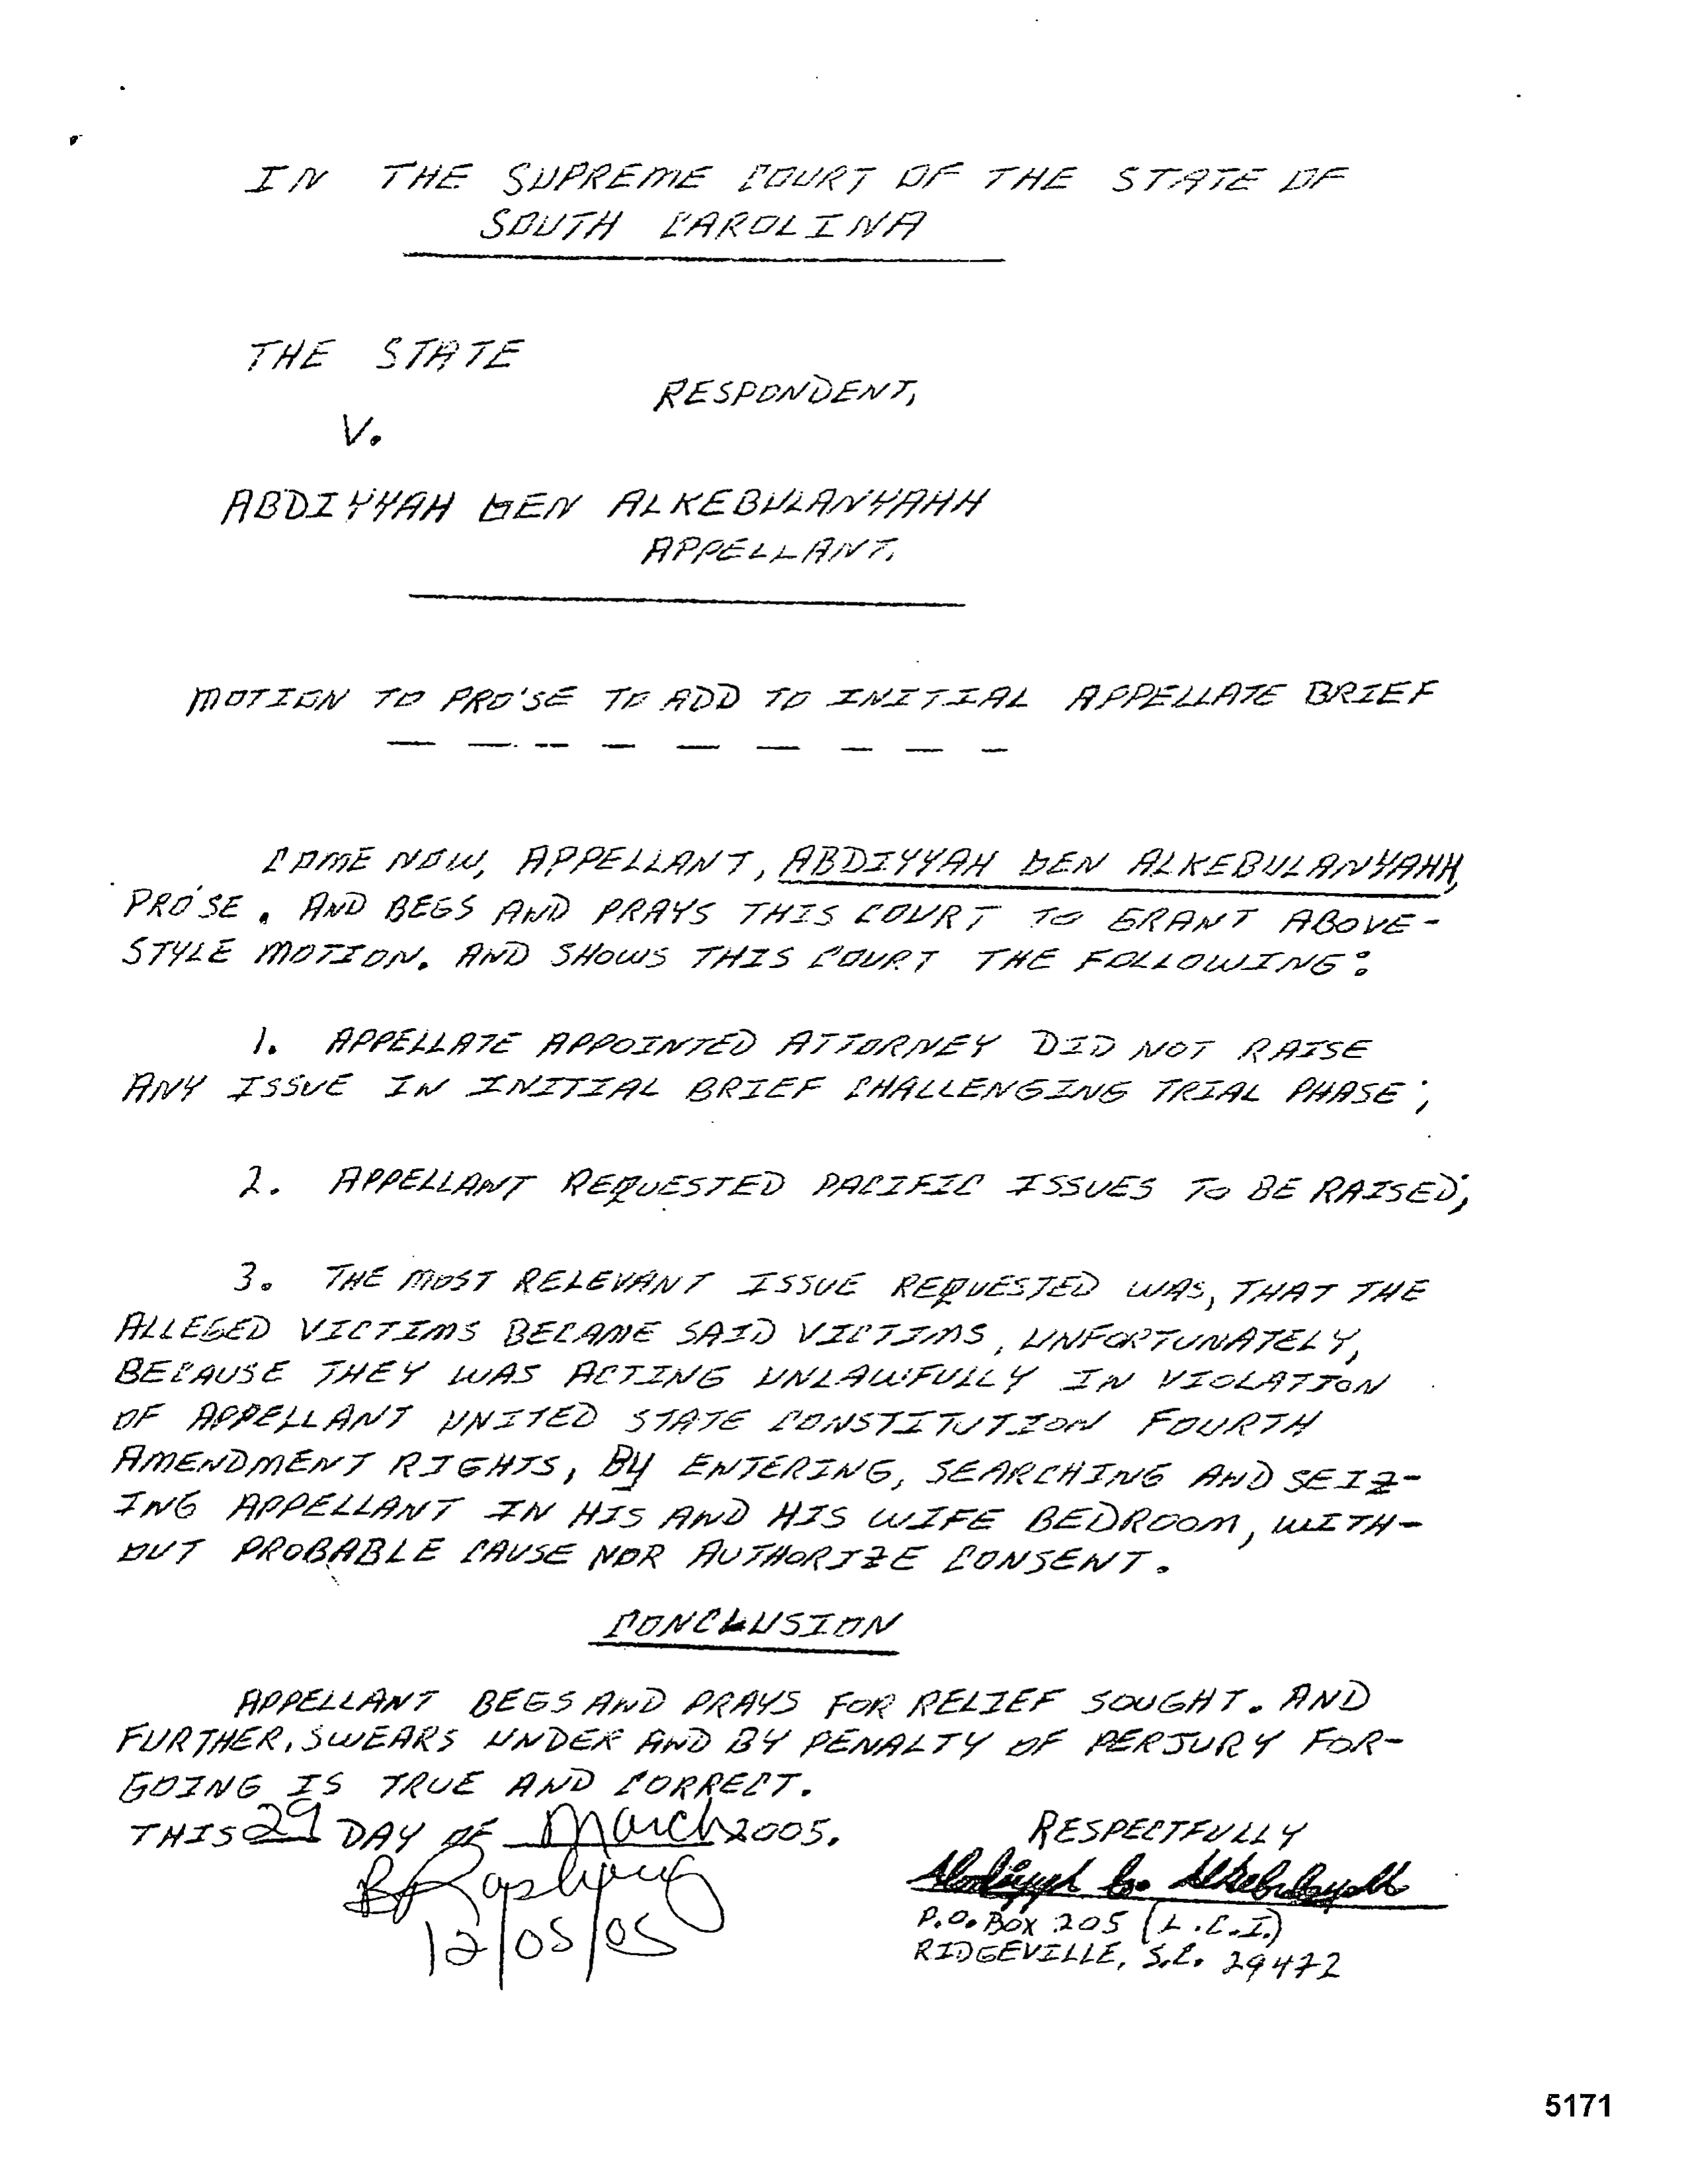 IN THE SUPREME COURT OF THE STATE OF
SOUTH CAROLINA
THE STATE
RESPONDENT,
V.
ABDIYYAH bEN ALKEBULANYAHH
APPELLANT.
MOTION TO PRO'SE TO ADD TO INITIAL APPELLATE BRIEF
COME NOW, APPELLANT, ABDIYYAH bEN ALKEBULANYAHH,
PRO'SE. AND BEGS AND PRAYS THIS COURT TO GRANT ABOVE-
STYLE MOTION. AND SHOWS THIS COURT THE FOLLOWING:
1. APPELLATE APPOINTED ATTORNEY DID NOT RAISE
ANY ISSUE IN INITIAL BRIEF CHALLENGING TRIAL PHASE;
2. APPELLANT REQUESTED PACIFIC ISSUES TO BE RAISED;
3. THE MOST RELEVANT ISSUE REQUESTED WAS, THAT THE
ALLEGED VICTIMS BECAME SAID VICTIMS, UNFORTUNATELY,
BECAUSE THEY WAS ACTING UNLAWFULLY IN VIOLATION
OF APPELLANT UNITED STATE CONSTITUTION FOURTH
AMENDMENT RIGHTS, BY ENTERING, SEARCHING AND SEIZ-
ING APPELLANT IN HIS AND HIS WIFE BEDROOM, WITH-
OUT PROBABLE CAUSE NOR AUTHORIZE CONSENT.
CONCLUSION
APPELLANT BEGS AND PRAYS FOR RELIEF SOUGHT. AND
FURTHER, SWEARS UNDER AND BY PENALTY OF PERJURY FOR-
GOING IS TRUE AND CORRECT.
THIS 29 DAY OF March 2005.
RESPECTFULLY
12/05/05
P.O. BOX 205 (L.C.I.)
RIDGEVILLE, S.C. 29472
5171